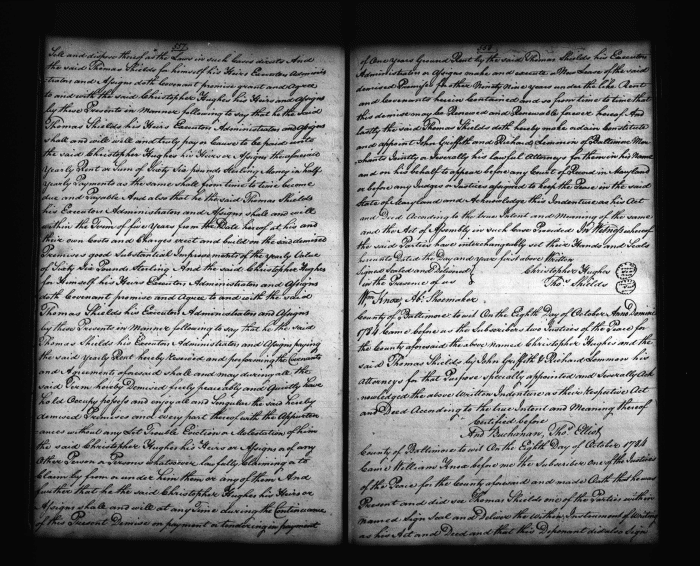 557
Sell and dispose thereof as the Laws in such Cases directs And
the said Thomas Shields for himself his Heirs Executors Adminis
trators and Assigns doth Covenant promise grant and Agree
to and with the said Christopher Hughes his Heirs and Assigns
by these Presents in Manner following to say that he the said
Thomas Shields his Heirs Executors Administrators and Assigns
shall and will well and truly pay or Cause to be paid unto
the said Christopher Hughes his Heirs or Assigns the aforesaid
Yearly Rent or Sum of Sixty Six pounds Sterling Money in half
Yearly Payments as the same shall from time to time become
due and Payable And also that he the said Thomas Shields
his Executors Administrators and Assigns shall and will
within the Term of five Years from the Date hereof at his and
their own Costs and Charges erect and build on the said demised
Premises good Substantial Improvements of the Yearly Value
of Sixty Six Pounds Sterling And the said Christopher Hughes
for Himself his Heirs Executors Administrators and Assigns
doth Covenant promise and Agree to and with the said
Thomas Shields his Executors Administrators and Assigns
by these Presents in Manner following to say that he the said
Thomas Shields his Executors Administrators and Assigns paying
the said Yearly Rent hereby reserved and performing the Covenants
and Agreements aforesaid shall and may during all the
said Term hereby Demised freely peaceably and Quietly have
hold Occupy possess and enjoy all and singular the said hereby
demised Premises and every part thereof with the Appurten
ances without any Let Trouble Eviction or Molestation of him
the said Christopher Hughes his Heirs or Assigns or of any
Other Person or Persons Whatsoever lawfully Claiming or to
Claim by from or under him them or any of them And
further that he the said Christopher Hughes his Heirs or
Assigns shall and will at any Time during the Continuance
of this Present Demise on payment or tendering in payment
558
of One Years Ground Rent by the said Thomas Shields his Executors
Administrators or Assigns make and execute a New Lease of the said
demised Premises for other Ninety Nine Years under the like Rent
and Covenants herein Contained and so from time to time that
this demise may be Renewed and Renewable forever hereof And
lastly the said Thomas Shields doth hereby make ordain Constitute
and appoint John Griffith and Richard Lemmon of Baltimore Mer
chants Jointly or Severally his lawful Attorneys for them in his Name
and on his behalf to appear before any Court of Record in Maryland
or before any Judges or Justices assigned to keep the Peace in the said
State of Maryland and Acknowledge this Indenture as his Act
and Deed According to the true Intent and Meaning of the same
and the Act of Assembly in such Case Provided In Witness whereof
the said Parties have interchangeably set their Hands and Seals
hereunto Dated the Day and year first above Written
Signed Sealed and Delivered
in the Presence of us
Christopher Hughes
Thos. Shields
Wm. Knox, Ab. Shoemaker.
County of Baltimore to wit On the Eighth Day of October Anno Domini
1784 Came before us the Subscribers two Justices of the Peace for
the County aforesaid the above Named Christopher Hughes and the
said Thomas Shields by John Griffith & Richard Lemmon his
Attorneys for that Purpose specially appointed and Severally Ack
nowledged the above Written Indenture as their Respective Act
and Deed According to the true Intent and Meaning thereof
Certified before
And. Buchanan, Thos. Elliot
County of Baltimore to wit On the Eighth Day of October 1784
Came William Knox before me the Subscriber one of the Justices
of the Peace for the County aforesaid and made Oath that he was
Present and did see Thomas Shields one of the Parties within
named Sign Seal and Deliver the Within Instrument of Writing
as his Act and Deed and that this Deponent did also Sign